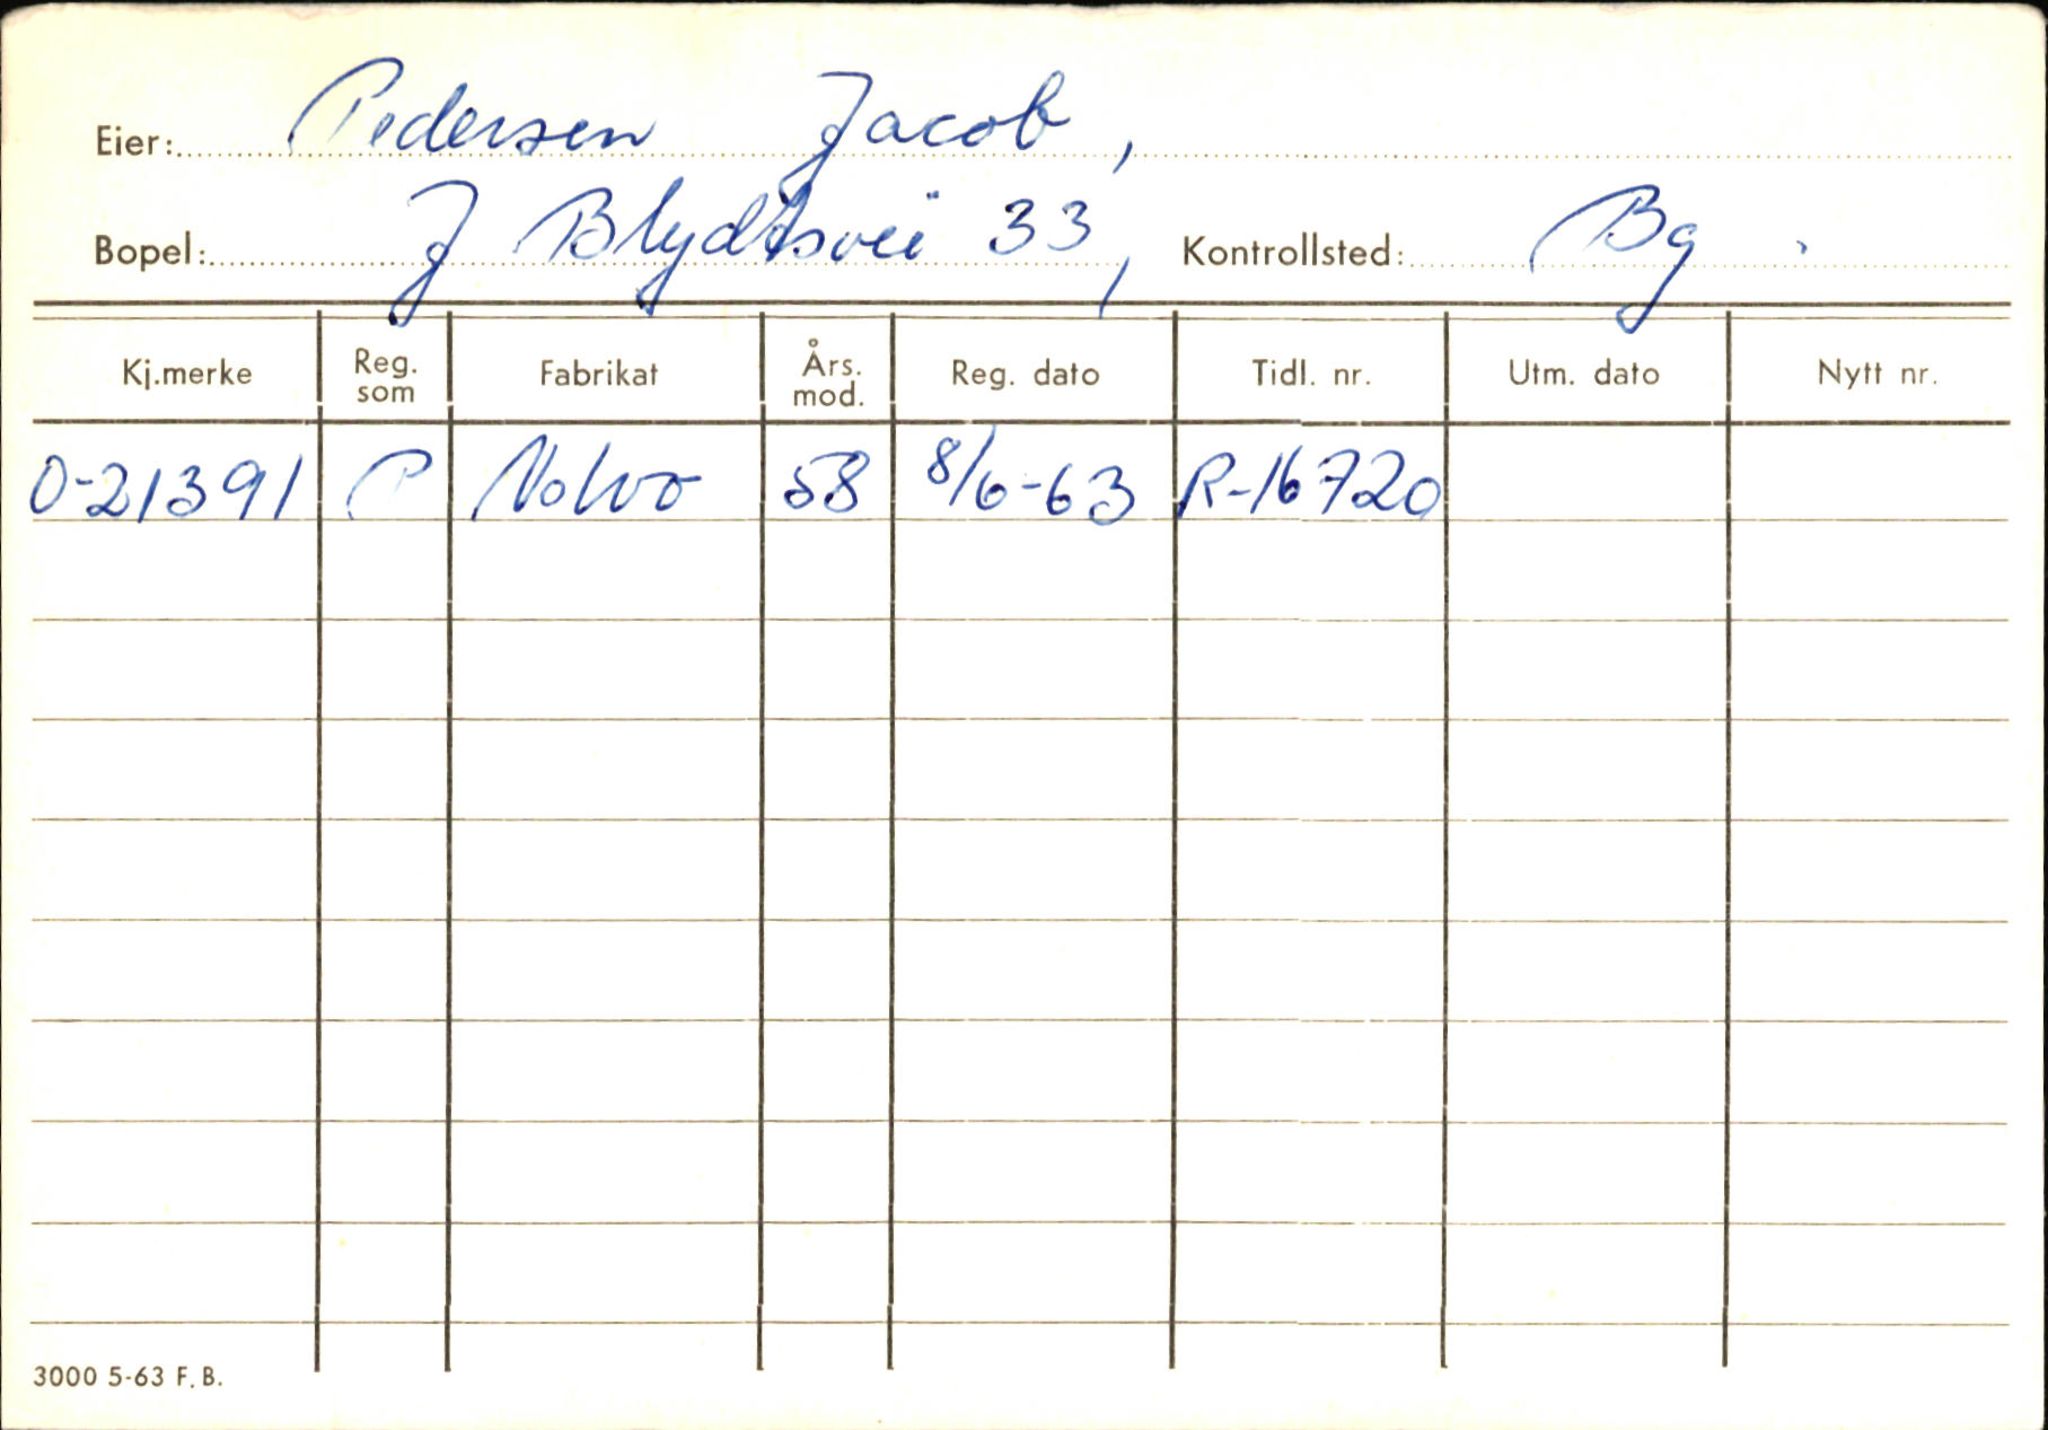 Eier: Pedersen Jacob,
Bopel: J Blydtsvei 33, Kontrollsted: Bg.
Kj.merke Reg. som Fabrikat Års. mod. Reg. dato Tidl. nr. Utm. dato Nytt nr.
O-21391 P Volvo 58 8/6-63 R-16720
3000 5-63 F.B.